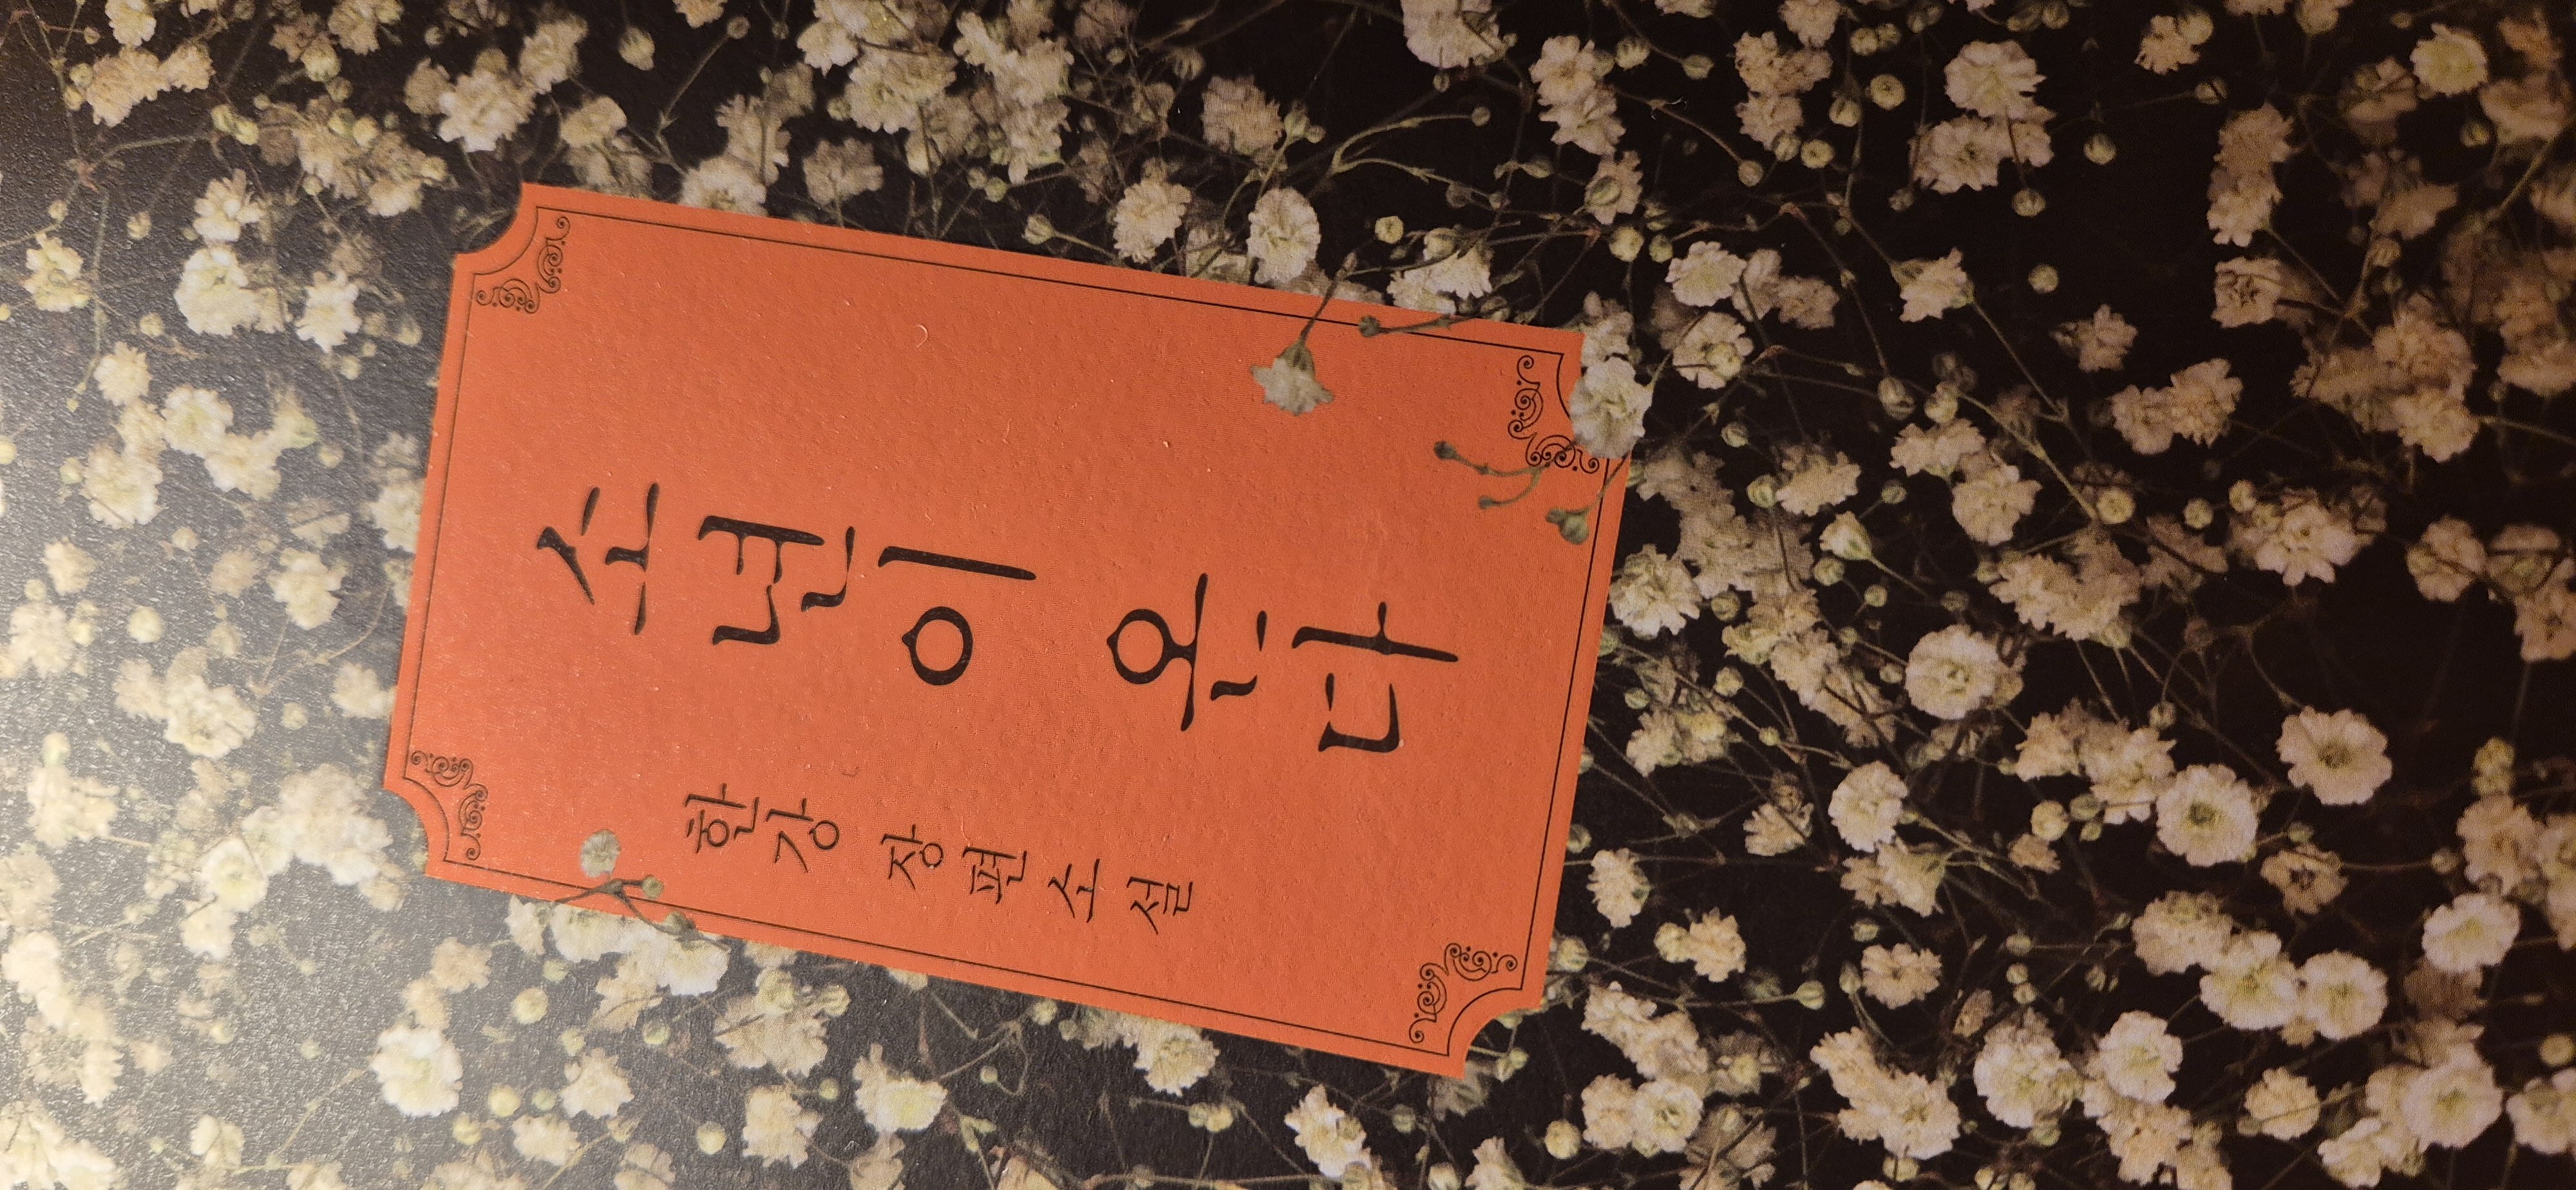 소년이 온다
한강 장편소설